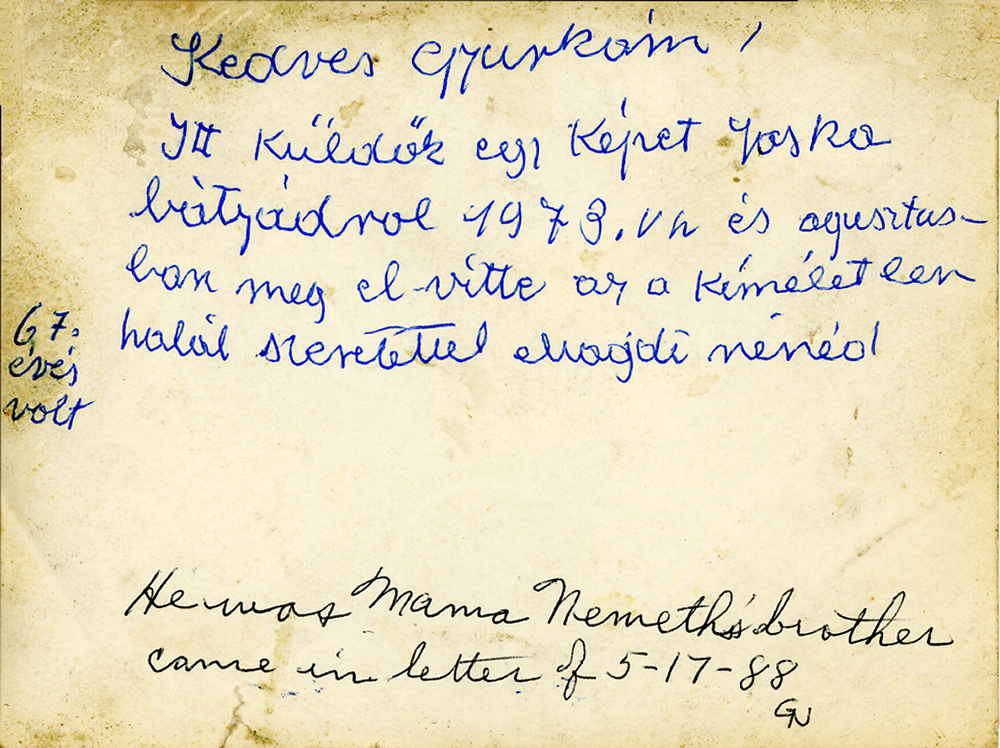 Kedves Gyurkám!
Itt küldök egy képet Joska
bátyádrol 1973.VII és agusztus-
ban meg el-vitte az a kíméletlen
halál szeretettel Magdi nénéd
67.
éves
volt
He was Mama Nemeth's brother
came in letter of 5-17-88
GN